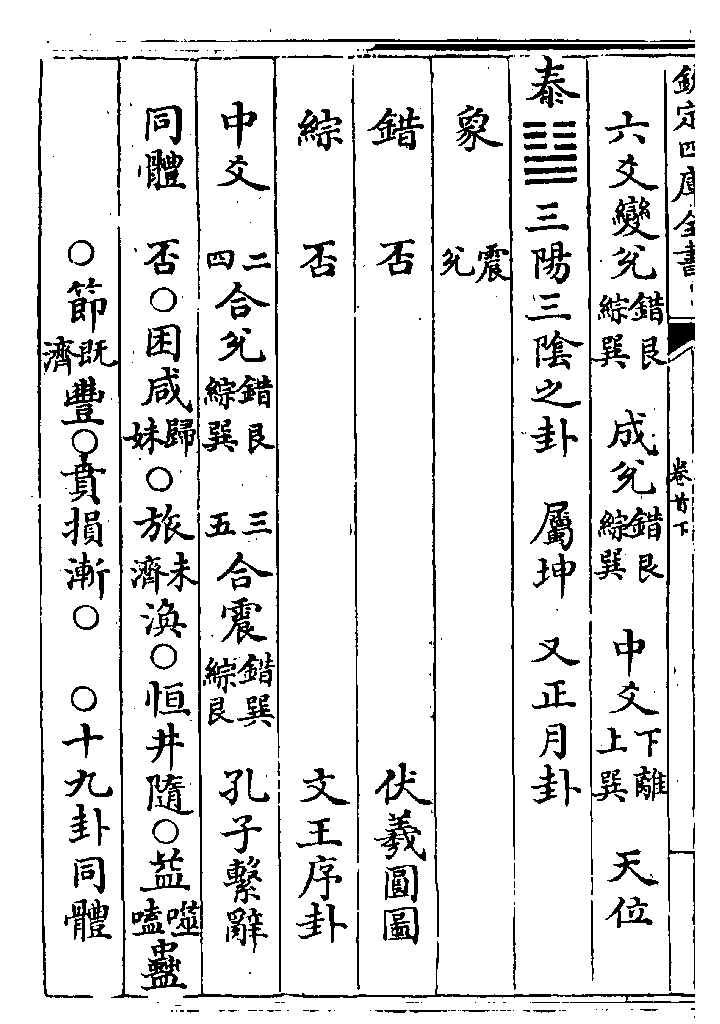 欽定四庫全書 卷首下
六爻變兊錯艮綜巽 成兊錯艮綜巽 中爻下離上巽 天位
泰 ䷊ 三陽三隂之卦 屬坤 又正月卦
象 震兊
錯 否 伏羲圓圖
綜 否 文王序卦
中爻 二四合兊錯艮綜巽 三五合震錯巽綜艮 孔子繫辭
同體 否○困咸歸妹○旅未濟渙○恒井隨○益噬嗑蠱
○節既濟豐○賁損漸○ ○十九卦同體